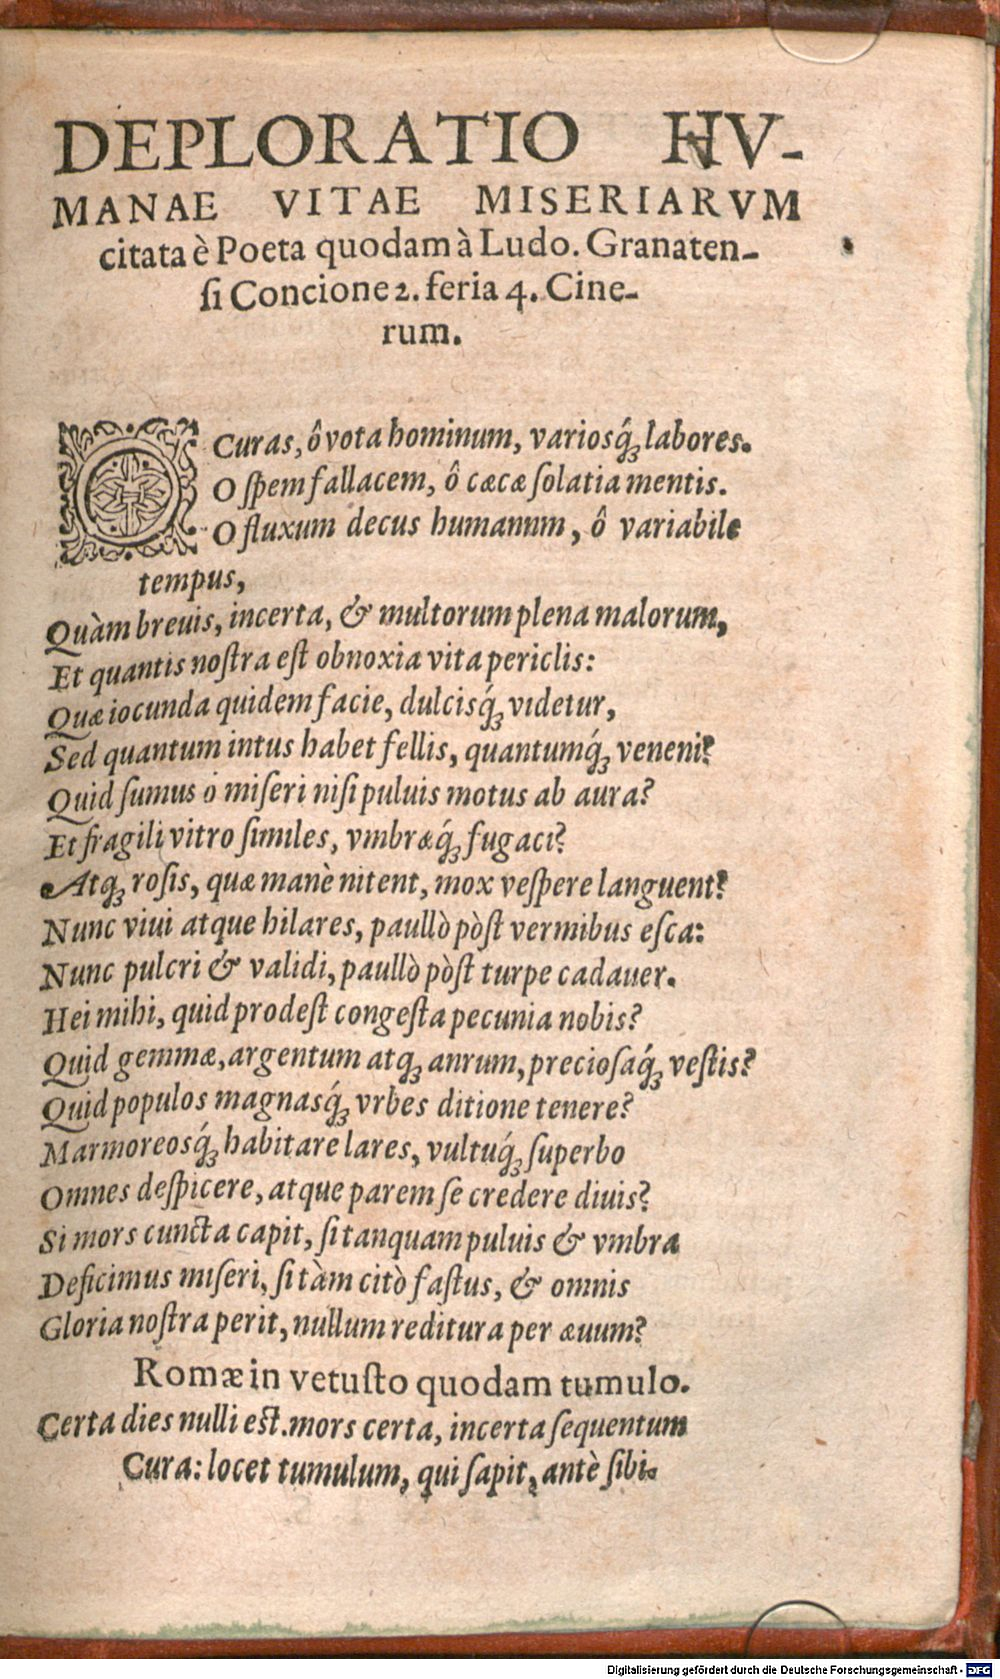 DEPLORATIO HV-
MANAE VITAE MISERIARVM
citata è Poeta quodam à Ludo. Granaten-
ſi Concione 2. feria 4. Cine-
rum.
O Curas, ô vota hominum, variosq́ꝫ labores.
O ſpem fallacem, ô cæcæ ſolatia mentis.
O fluxum decus humanum, ô variabile
tempus,
Quàm breuis, incerta, & multorum plena malorum,
Et quantis noſtra eſt obnoxia vita periclis:
Quæ iocunda quidem facie, dulcisq́ꝫ videtur,
Sed quantum intus habet fellis, quantumq́ꝫ veneni?
Quid ſumus ò miſeri niſi puluis motus ab aura?
Et fragili vitro ſimiles, vmbræq́ꝫ fugaci?
Atqꝫ roſis, quæ manè nitent, mox veſpere languent?
Nunc viui atque hilares, paullò pòſt vermibus eſca:
Nunc pulcri & validi, paullò pòſt turpe cadauer.
Hei mihi, quid prodeſt congeſta pecunia nobis?
Quid gemmæ, argentum atqꝫ anrum, precioſaq́ꝫ veſtis?
Quid populos magnasq́ꝫ vrbes ditione tenere?
Marmoreosq́ꝫ habitare lares, vultuq́ꝫ ſuperbo
Omnes deſpicere, atque parem ſe credere diuis?
Si mors cuncta capit, ſi tanquam puluis & vmbra
Deficimus miſeri, ſi tàm citò faſtus, & omnis
Gloria noſtra perit, nullum reditura per æuum?
Romæ in vetuſto quodam tumulo.
Certa dies nulli eſt. mors certa, incerta ſequentum
Cura: locet tumulum, qui ſapit, antè ſibi.
Digitalisierung gefördert durch die Deutsche Forschungsgemeinschaft - DFG